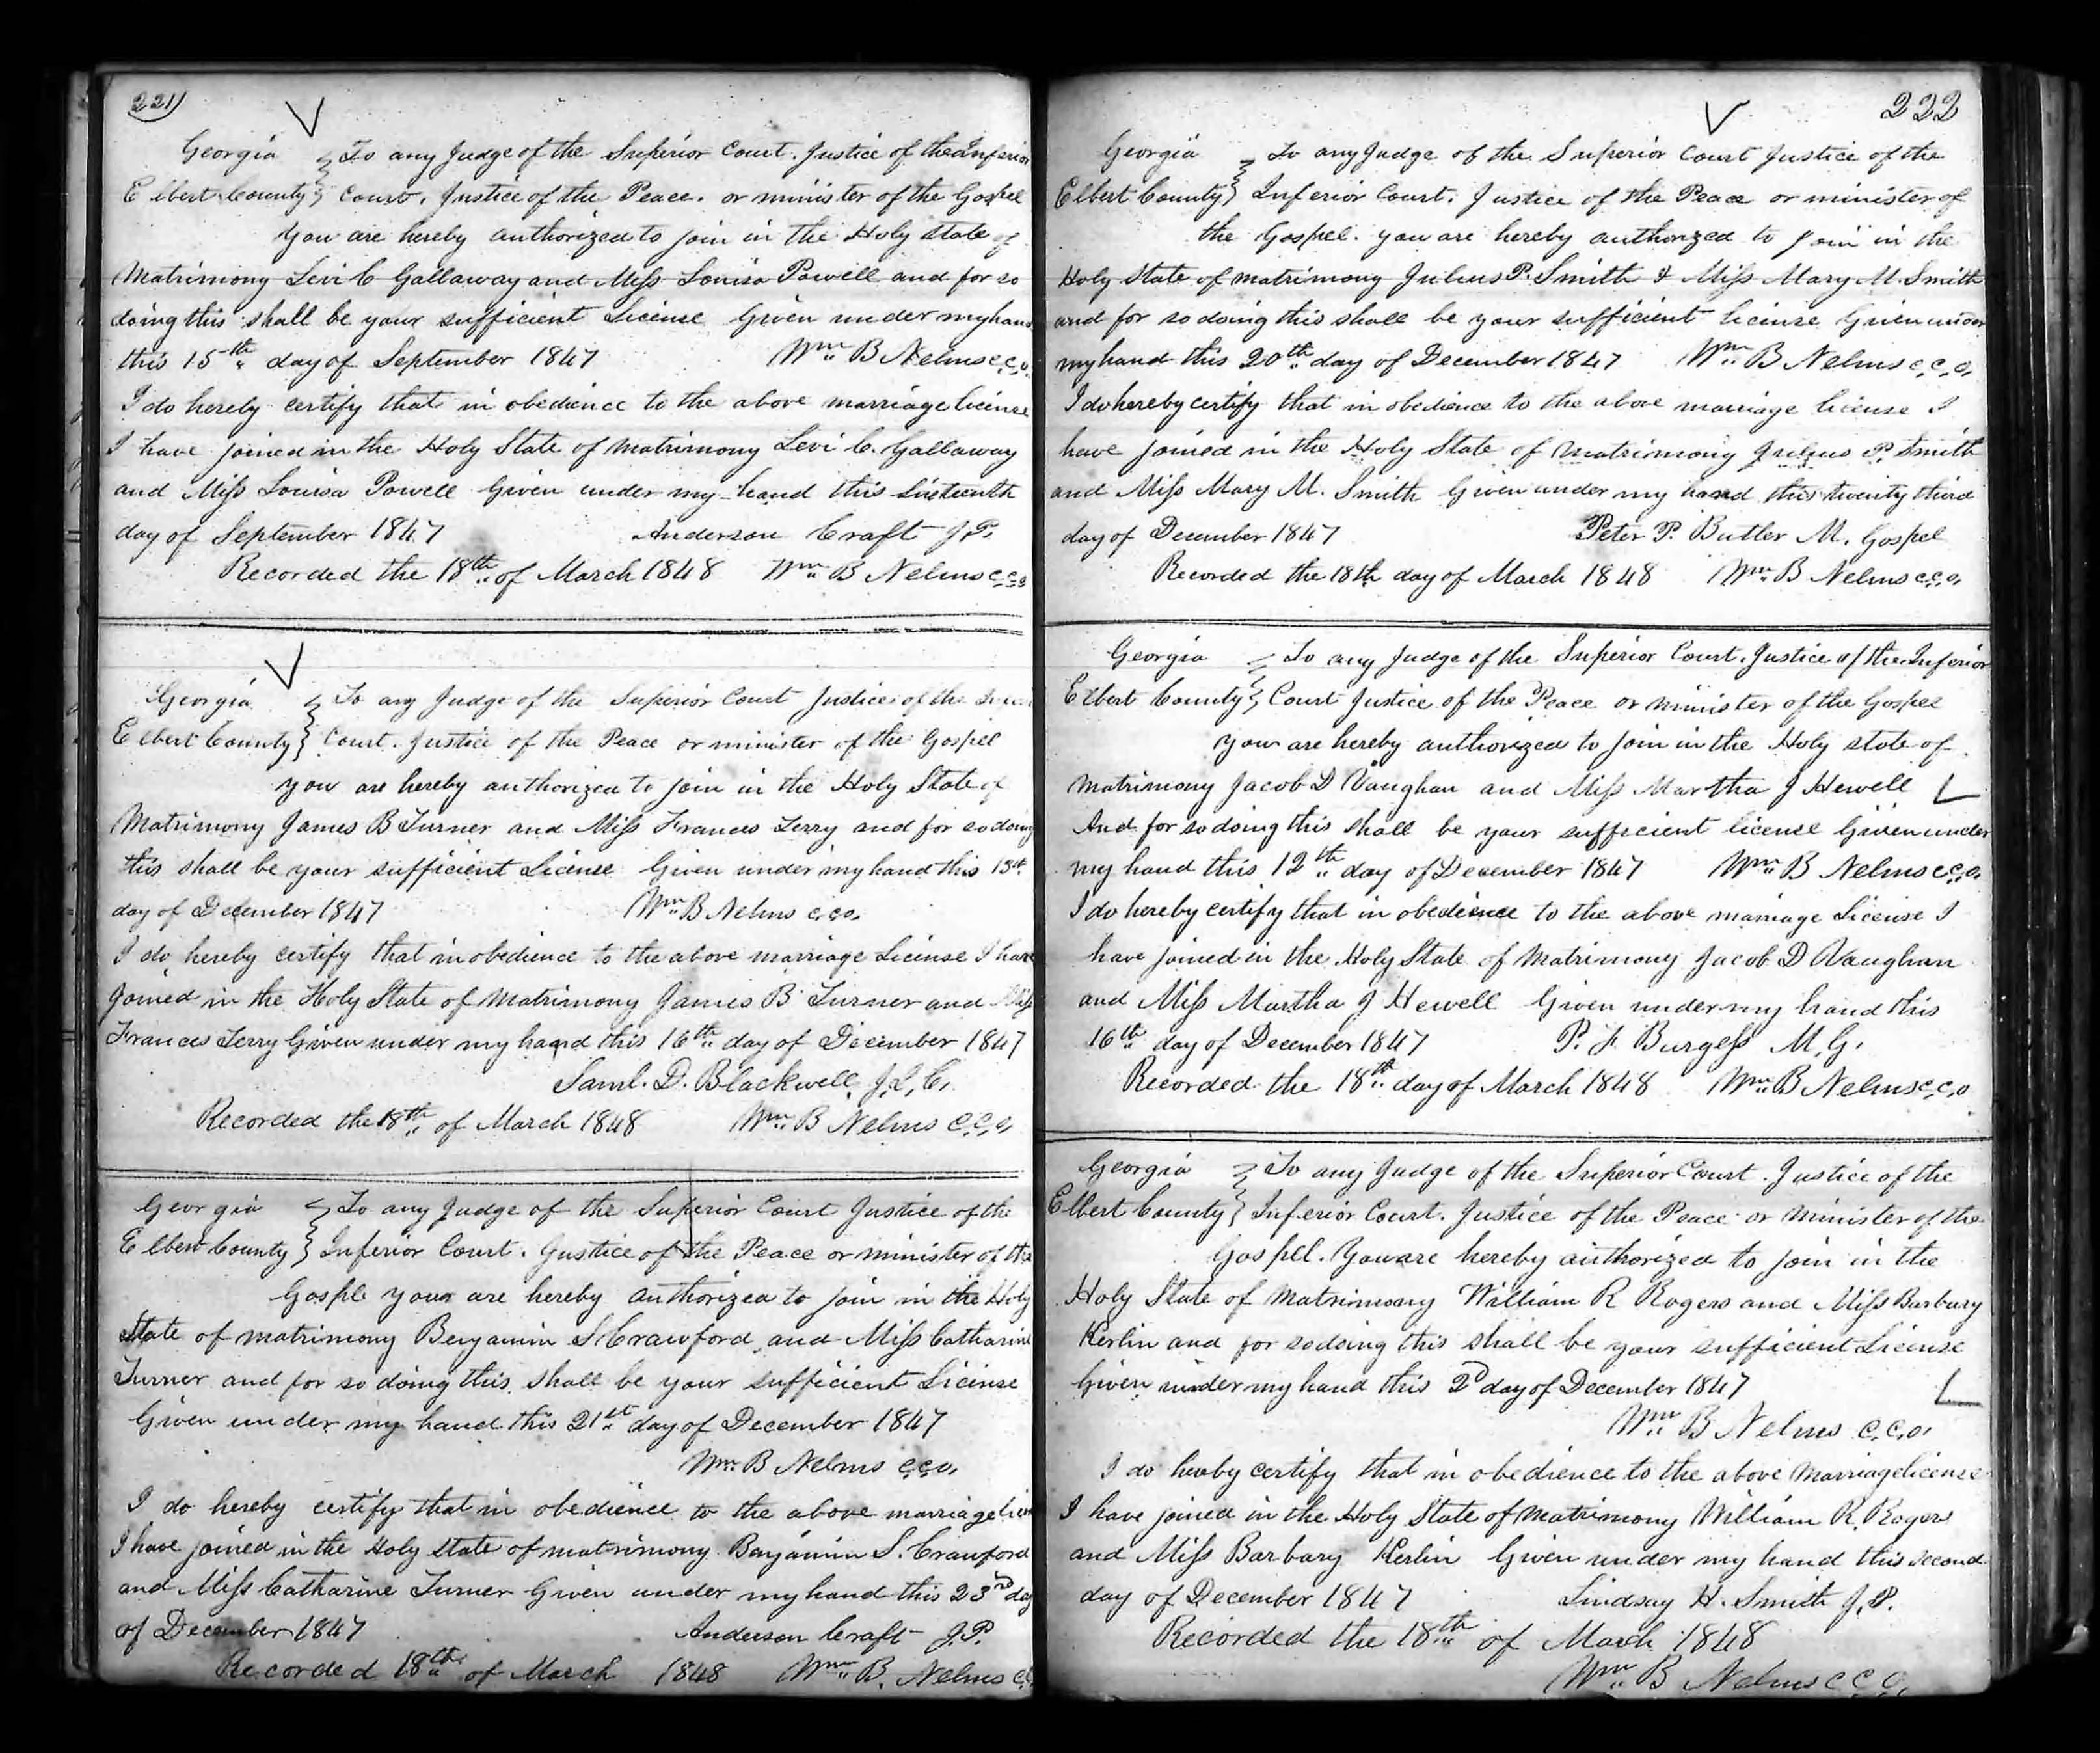 221)
Georgia } To any Judge of the Superior Court. Justice of the Inferior
Elbert County } Court. Justice of the Peace. or minister of the Gospel
You are hereby authorized to join in the Holy state of
Matrimony Levi C Gallaway and Miss Louisa Powell and for so
doing this shall be your sufficient License Given under my hand
this 15th day of September 1847 Wm B Nelms c.c.o.
I do hereby certify that in obedience to the above marriage license
I have joined in the Holy State of matrimony Levi C. Gallaway
and Miss Louisa Powell Given under my hand this Sixteenth
day of September 1847 Anderson Craft J.P.
Recorded the 18th of March 1848 Wm B Nelms c.c.o
Georgia } To any Judge of the Superior Court Justice of the
Elbert County } Court. Justice of the Peace or minister of the Gospel
You are hereby authorized to join in the Holy State of
Matrimony James B Turner and Miss Frances Terry and for so doing
this shall be your sufficient License Given under my hand this 13th
day of December 1847 Wm B Nelms c.c.o.
I do hereby certify that in obedience to the above marriage License I have
joined in the Holy State of matrimony James B Turner and Miss
Frances Terry Given under my hand this 16th day of December 1847
Saml. D. Blackwell J.I.C.
Recorded the 18th of March 1848 Wm B Nelms c.c.o.
Georgia } To any Judge of the Superior Court Justice of the
Elbert County } Inferior Court. Justice of the Peace or minister of the
Gospl your are hereby authorized to join in the Holy
State of matrimony Benjamin S. Crawford and Miss Catharine
Turner and for so doing this shall be your sufficient License
Given under my hand this 21st day of December 1847
Wm B Nelms c.c.o.
I do hereby certify that in obedience to the above marriage
I have joined in the Holy state of matrimony Benjamin S. Crawford
and Miss Catharine Turner Given under my hand this 23rd day
of December 1847 Anderson Craft J.P.
Recorded 18th of March 1848 Wm B. Nelms
222
Georgia } To any Judge of the Superior Court Justice of the
Elbert County } Inferior Court. Justice of the Peace or minister of
the Gospel. you are hereby authorized to join in the
Holy State of matrimony Julius P. Smith & Miss Mary M. Smith
and for so doing this shall be your sufficient license Given under
my hand this 20th day of December 1847 Wm B Nelms c.c.o.
I do hereby certify that in obedience to the above marriage license I
have joined in the Holy State of matrimony Julius P. Smith
and Miss Mary M. Smith Given under my hand this twenty third
day of December 1847 Peter P. Butler M. Gospel
Recorded the 18th day of March 1848 Wm B Nelms c.c.o.
Georgia } To any Judge of the Superior Court. Justice of the Inferior
Elbert County } Court Justice of the Peace or minister of the Gospel
You are hereby authorized to join in the Holy state of
matrimony Jacob D Vaughan and Miss Martha J Hewell
And for so doing this shall be your sufficient license Given under
my hand this 12th day of December 1847 Wm B Nelms c.c.o.
I do hereby certify that in obedience to the above marriage License I
have joined in the Holy State of Matrimony Jacob D Vaughan
and Miss Martha J Hewell Given under my hand this
16th day of December 1847 P. F Burgess M.G.
Recorded the 18th day of March 1848 Wm B Nelms c.c.o
Georgia } To any Judge of the Superior Court. Justice of the
Elbert County } Inferior Court. Justice of the Peace or Minister of the
Gospel. You are hereby authorized to join in the
Holy State of Matrimony William R Rogers and Miss Barbary
Kerlin and for so doing this shall be your sufficient License
Given under my hand this 2d day of December 1847
Wm B Nelms c.c.o.
I do hereby certify that in obedience to the above Marriage license
I have joined in the Holy State of matrimony William R. Rogers
and Miss Barbary Kerlin Given under my hand this second
day of December 1847 Lindsay H. Smith J.P.
Recorded the 18th of March 1848
Wm B Nelms c.c.o.